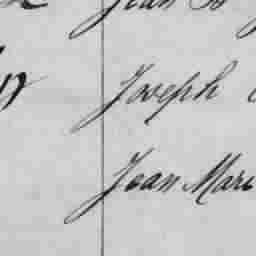 Jean
Joseph
Jean Mari